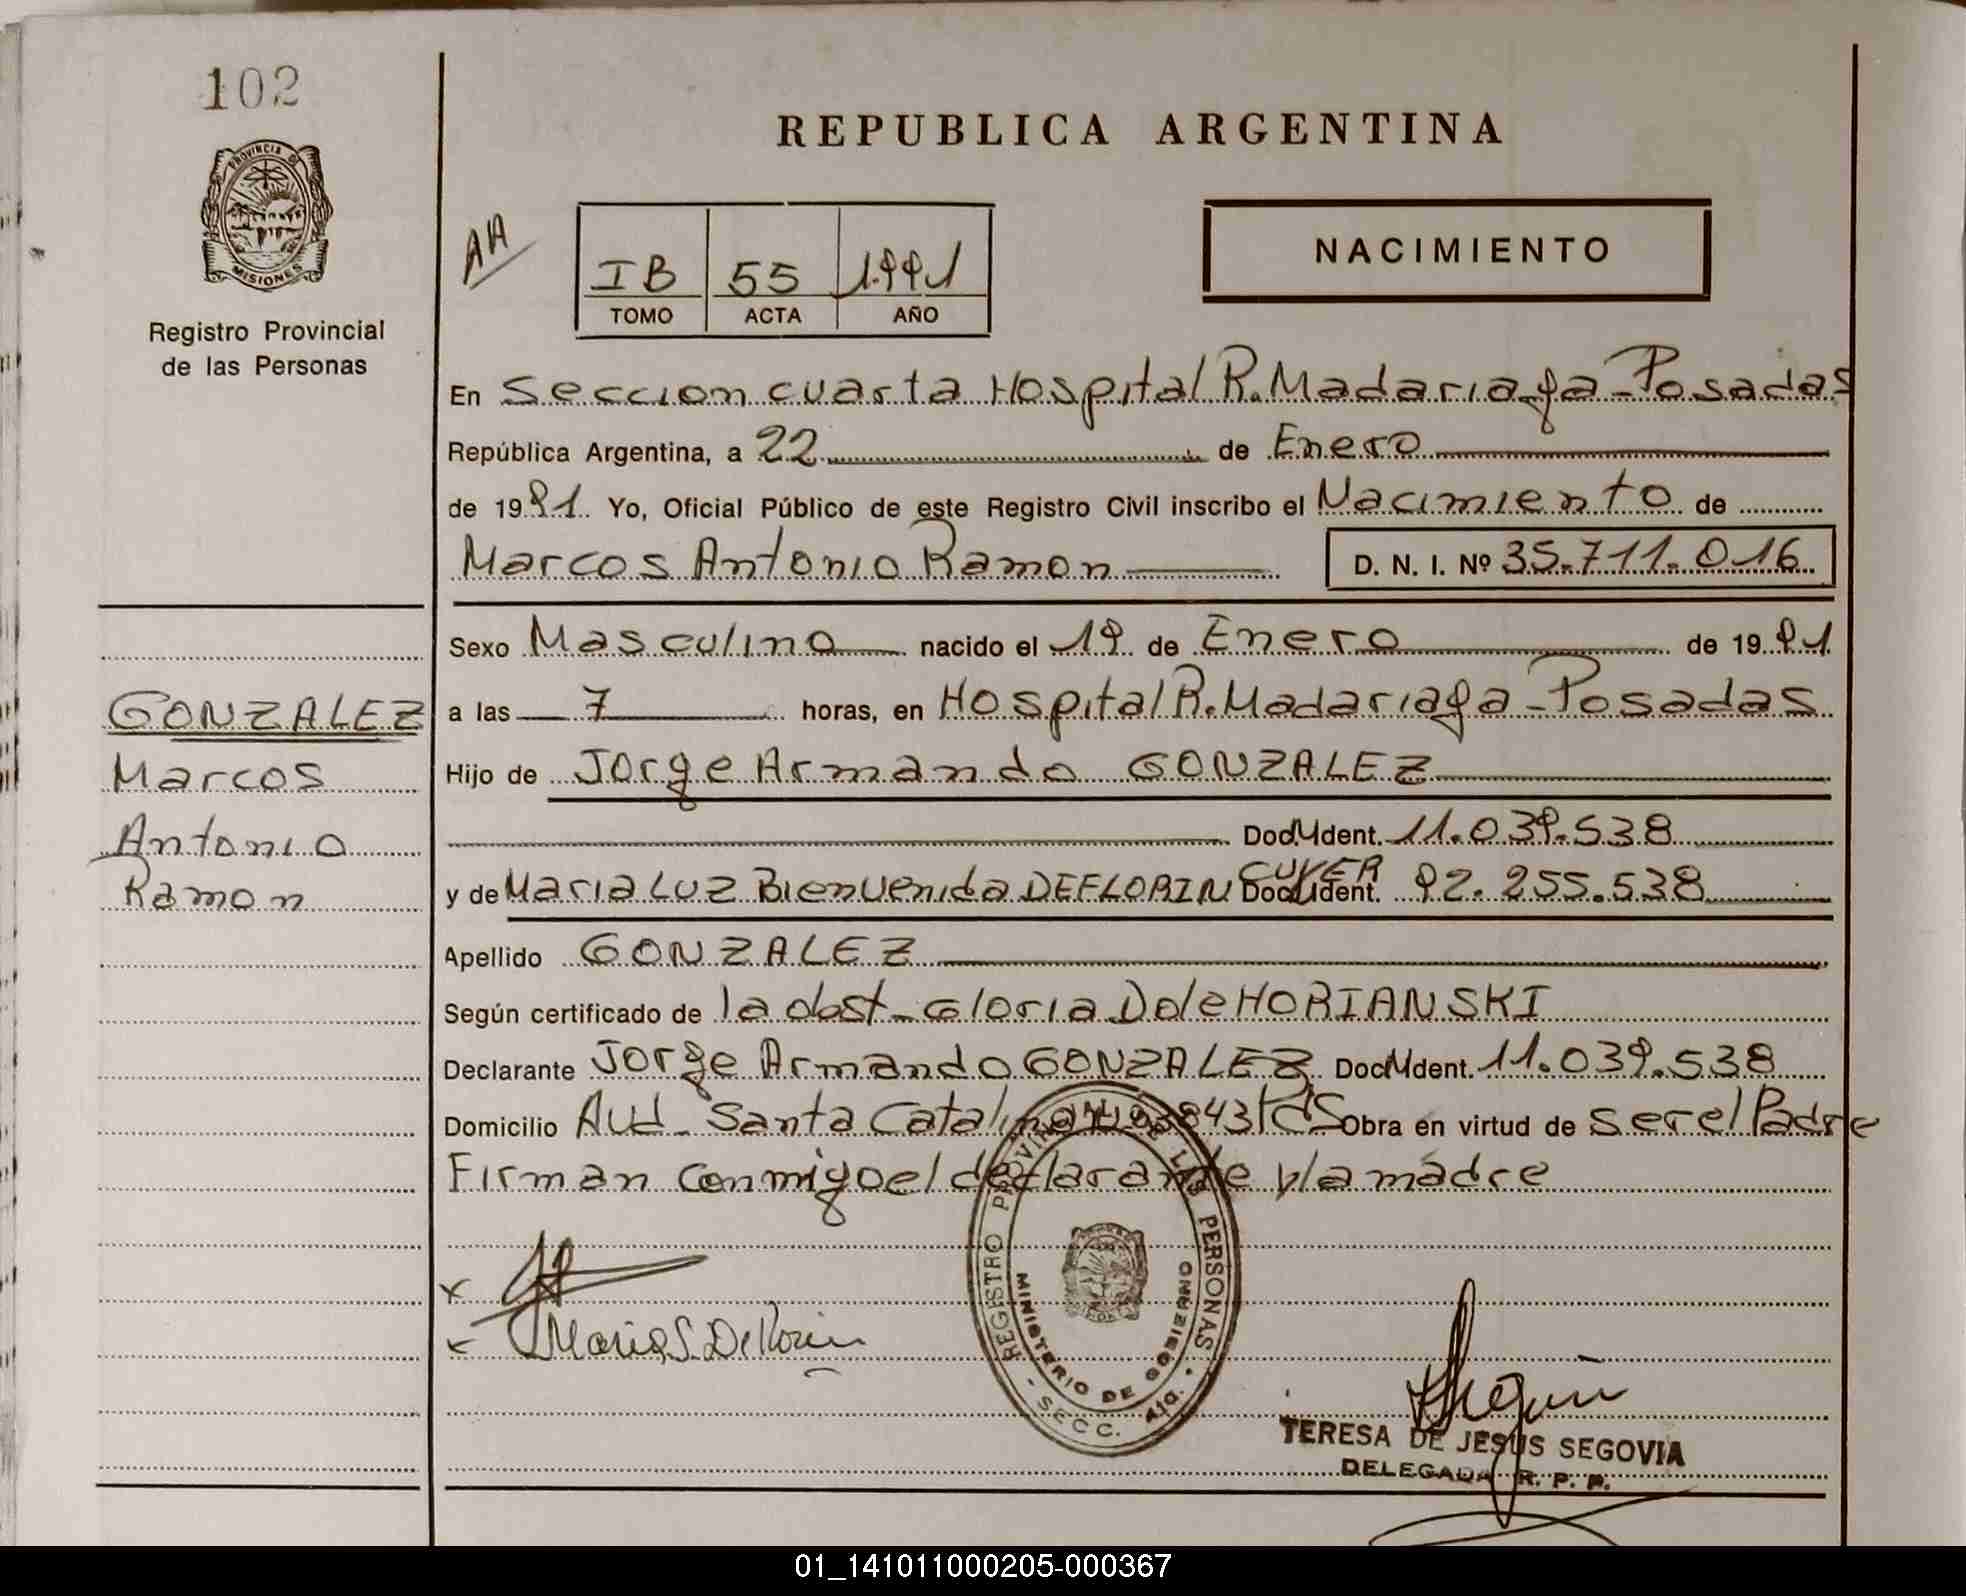 102
PROVINCIA DE
MISIONES
Registro Provincial
de las Personas
REPUBLICA ARGENTINA
AA
IB 55 1.991
TOMO ACTA AÑO
NACIMIENTO
En Seccion cuarta Hospital R. Madariaga - Posadas
República Argentina, a 22 de Enero
de 1991. Yo, Oficial Público de este Registro Civil inscribo el Nacimiento de
Marcos Antonio Ramon D. N. I. Nº 35.711.016
Sexo Masculino nacido el 19 de Enero de 1991
a las 7 horas, en Hospital R. Madariaga - Posadas
Hijo de Jorge Armando GONZALEZ
Doc. Ident. 11.039.538
y de Maria Luz Bienvenida DEFLORIN Doc. Ident. 92.255.538
Apellido GONZALEZ
Según certificado de la obst. Gloria D de HORIANSKI
Declarante Jorge Armando GONZALEZ Doc. Ident. 11.039.538
Domicilio Avd. Santa Catalina Nº 3843 Pdas Obra en virtud de ser el Padre
Firman conmigo el declarante y la madre
GONZALEZ
Marcos
Antonio
Ramon
REGISTRO PROVINCIAL DE LAS PERSONAS
MINISTERIO DE GOBIERNO
SECC. 4ta.
TERESA DE JESUS SEGOVIA
DELEGADA R. P. P.
01_141011000205-000367